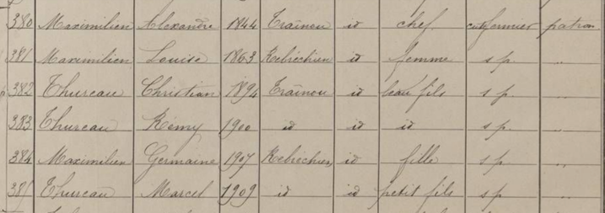 380 Maximilien Alexandre 1844 Traînou id chef cultfermier patron
381 Maximilien Louise 1863 Rebréchien id femme s p "
382 Thureau Christian 1894 Traînou id beau fils s p "
383 Thureau Rémy 1900 id id id s p "
384 Maximilien Germaine 1907 Rebréchien id fille s p "
385 Thureau Marcel 1909 id id petit fils s p "